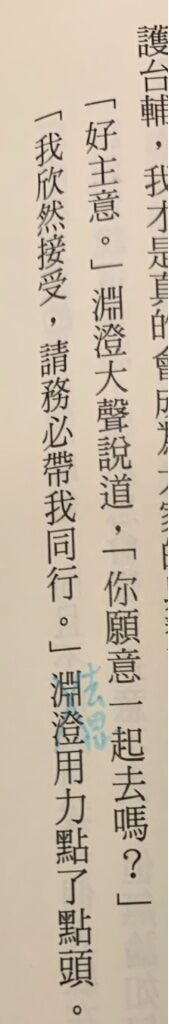 護台輔，我才是真的會成為大家的
「好主意。」淵澄大聲說道，「你願意一起去嗎？」
「我欣然接受，請務必帶我同行。」淵澄用力點了點頭。
去